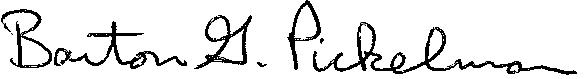 Barton G. Pickelman